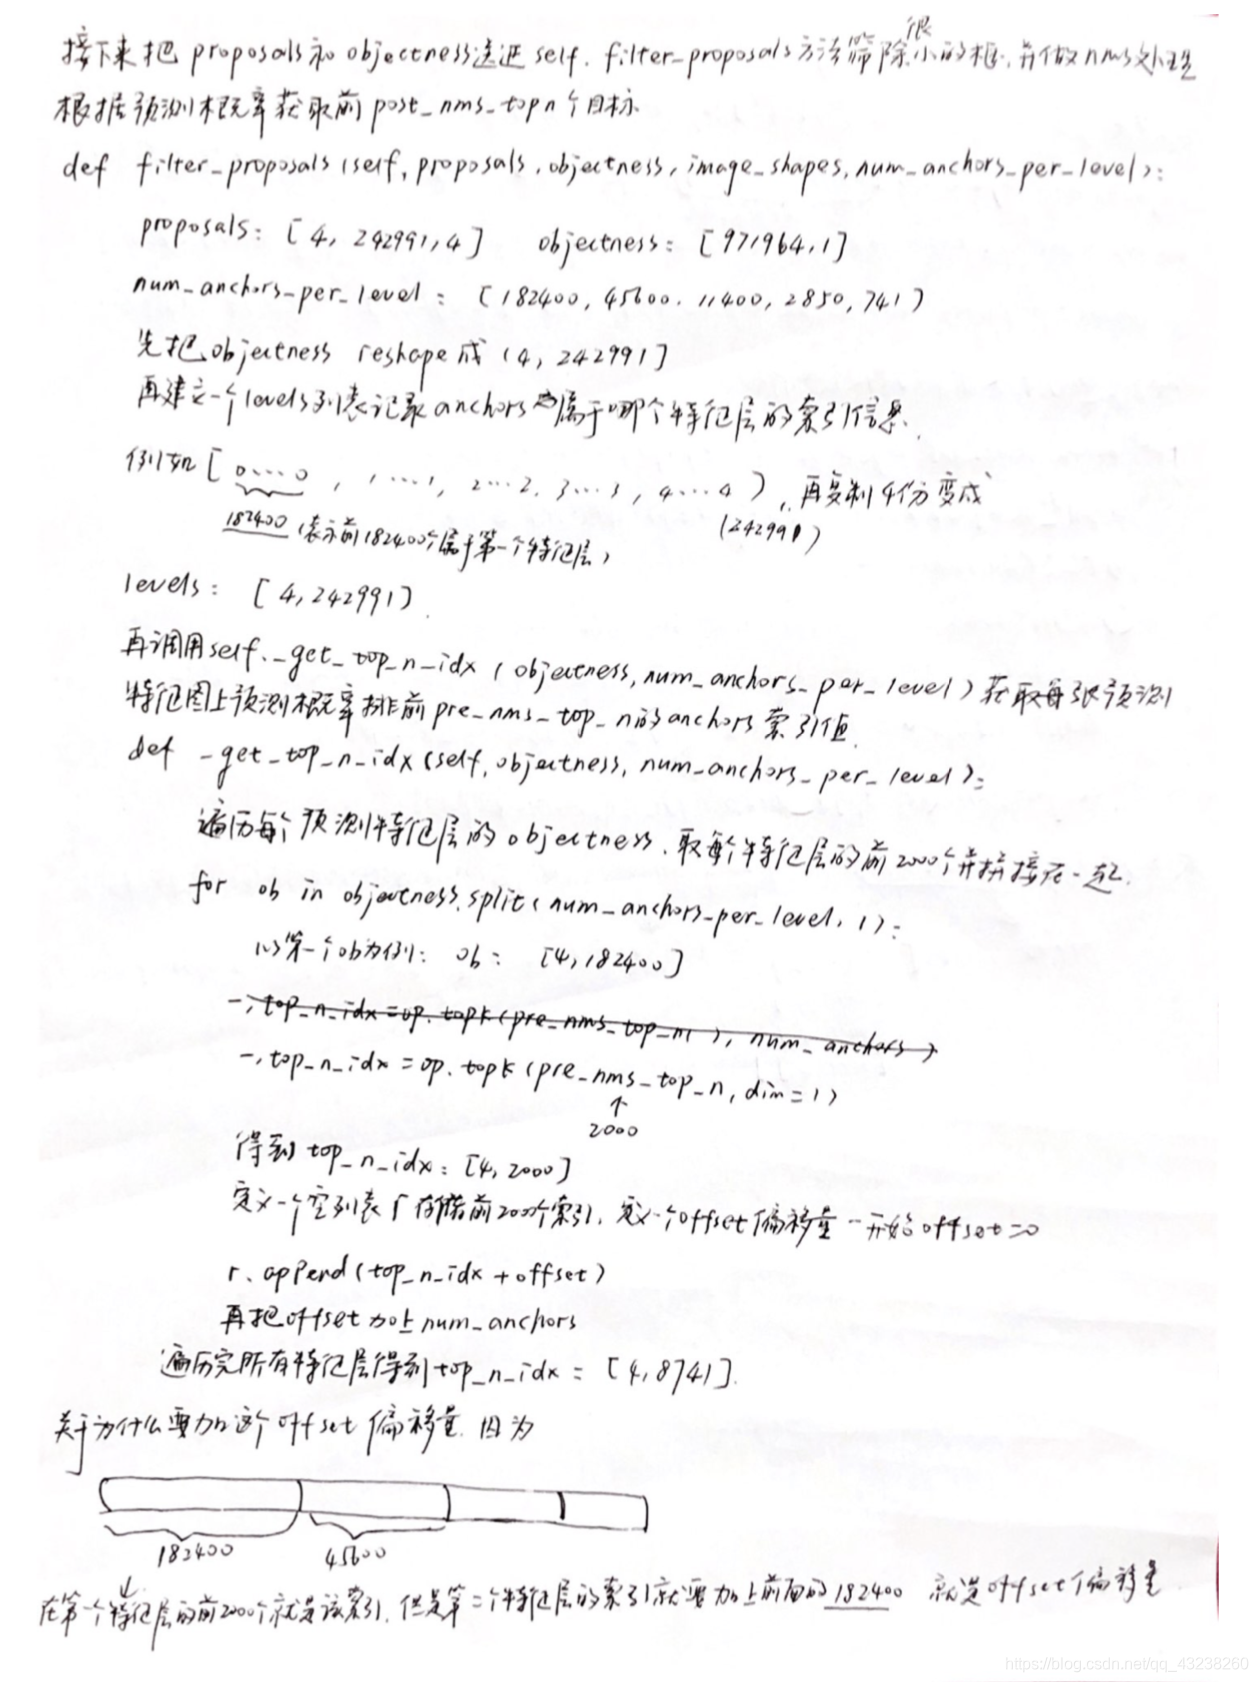 接下来把 proposals和 objectness送进 self. filter_proposals方法筛除很小的框,并做nms处理
根据预测概率获取前post_nms_topn个目标
def filter_proposals(self, proposals, objectness, image_shapes, num_anchors_per_level):
proposals: [4, 242991, 4] objectness: [971964, 1]
num_anchors_per_level: [182400, 45600, 11400, 2850, 741)
先把objectness reshape成 (4, 242991]
再建立一个levels列表记录anchors属于哪个特征层的索引信息.
例如 [ 0....0 , 1....1, 2...2, 3...3, 4....4 ), 再复制4份变成
182400 (表示前182400个属于第一个特征层) (242991)
levels: [4, 242991)
再调用self._get_top_n_idx (objectness, num_anchors_per_level)获取每张预测
特征图上预测概率排前pre_nms_top_n的anchors索引值.
def _get_top_n_idx(self, objectness, num_anchors_per_level):
遍历每个预测特征层的objectness,取每个特征层的前2000个并拼接在一起.
for ob in objectness.split(num_anchors_per_level, 1):
以第一个ob为例: ob: [4, 182400]
-, top_n_idx = op. topk (pre_nms_top_n( ), num_anchors)
-, top_n_idx = op. topk (pre_nms_top_n, dim=1)
↑
2000
得到 top_n_idx: [4, 2000]
定义一个空列表r存储前2000个索引,定义一个offset偏移量 一开始offset=0
r. append(top_n_idx + offset)
再把offset加上num_anchors
遍历完所有特征层得到top_n_idx = [4, 8741].
关于为什么要加这个offset偏移量,因为
182400 45600
在第一个特征层的前2000个就是该索引,但是第二个特征层的索引就要加上前面的182400 就是offset偏移量
https://blog.csdn.net/qq_43238260